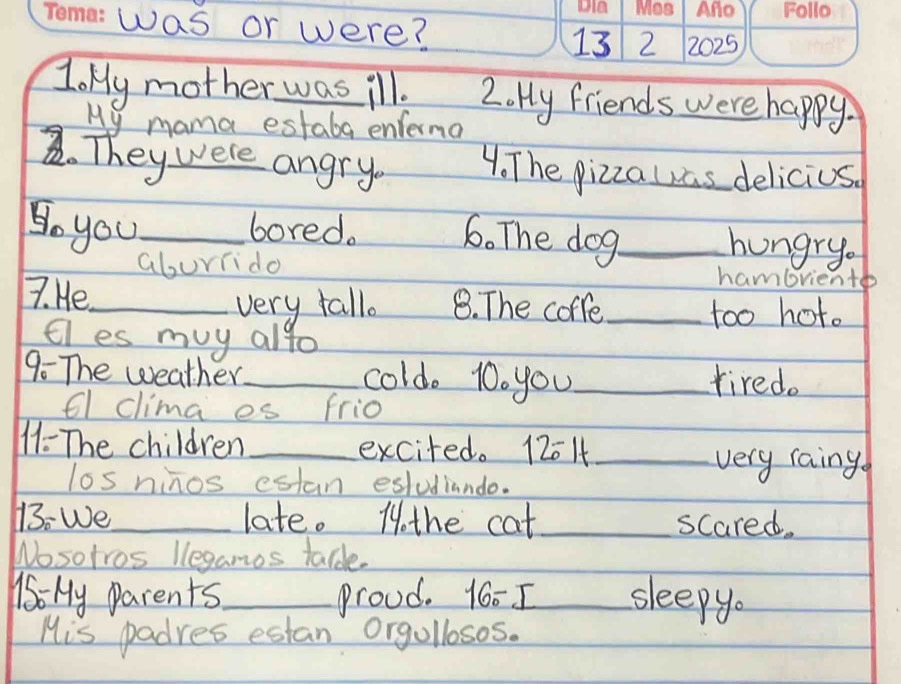 Tema: Was or were? Día Mes Año Folio
13 2 2025
1. My mother was ill. 2. My friends were happy.
My mama estaba enferma
3. They were angry. 4. The pizza was delicius.
5. you ______ bored. 6. The dog ______ hungry.
aburrido hambriento
7. He ______ very tall. 8. The coffe ______ too hot.
El es muy alto
9.- The weather ______ cold. 10. you ______ tired.
El clima es frio
11.- The children ______ excited. 12.- It ______ very rainy.
los niños estan estudiando.
13.- We ______ late. 14. the cat ______ scared.
Nosotros llegamos tarde.
15.- My parents ______ proud. 16.- I ______ sleepy.
Mis padres estan orgullosos.